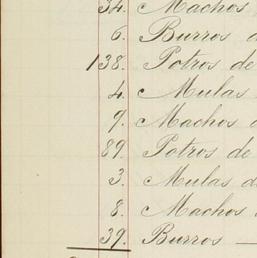 34. Machos
6. Burros d
138. Potros de
4. Mulas
9. Machos d
89. Potros de
3. Mulas d
8. Machos
39. Burros —